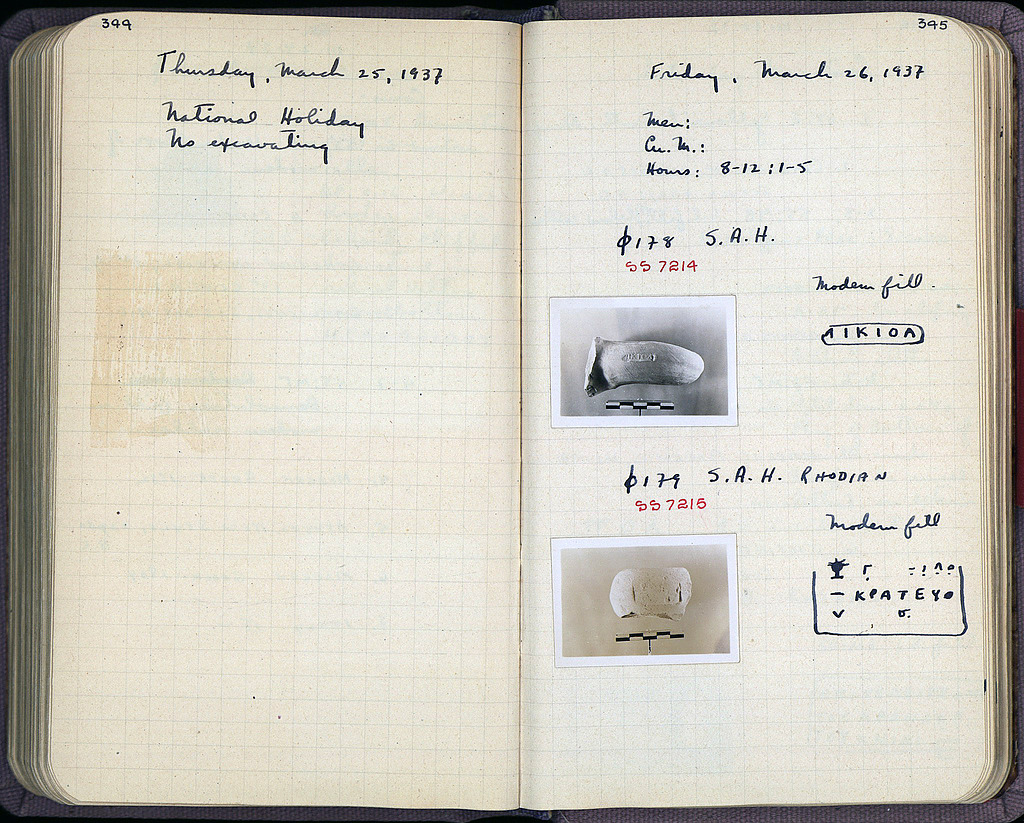 344
Thursday, March 25, 1937
National Holiday
No excavating
345
Friday, March 26, 1937
Men:
Cu. M.:
Hours: 8-12; 1-5
φ178 S.A.H.
SS 7214
Modern fill.
ΙΙΚΙΟΛ
φ179 S.A.H. RHODIAN
SS 7215
Modern fill
ΚΡΑΤΕΥΟ